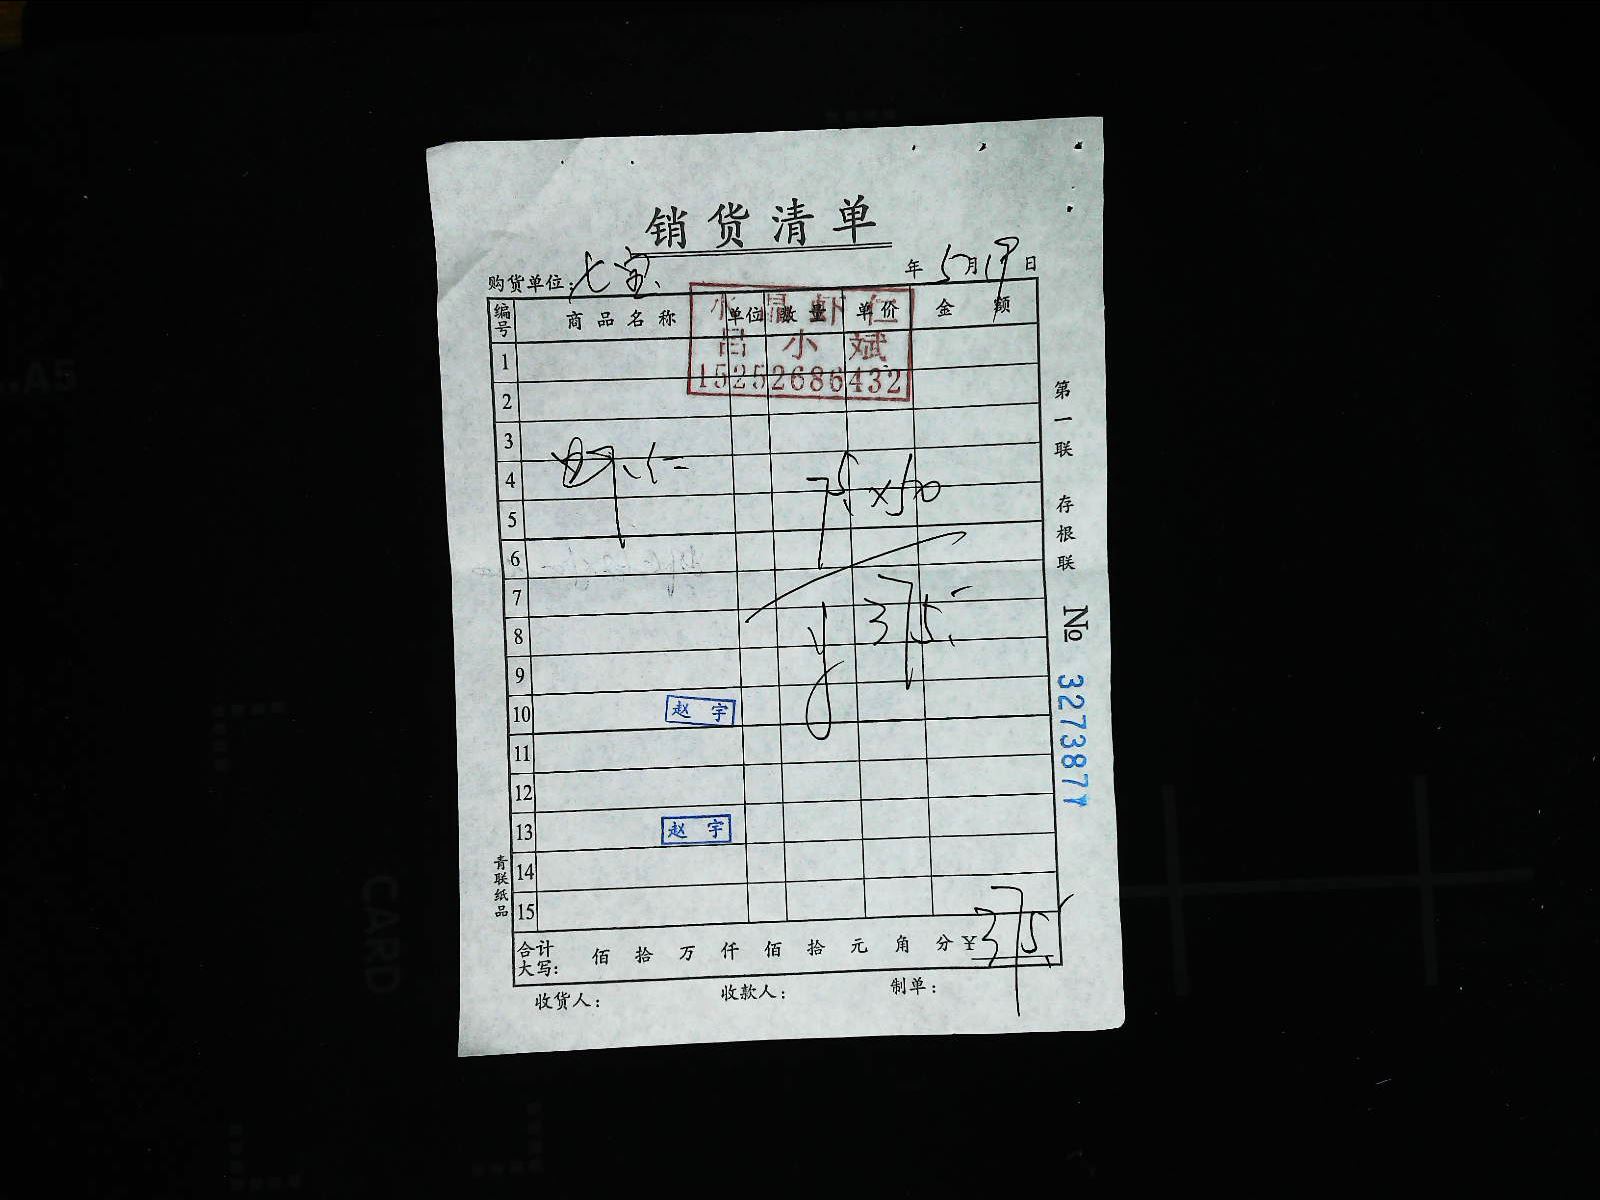 销货清单
购货单位：七宝
年 5月19日
编号 商品名称 单位 数量 单价 金额
水晶虾仁
吕小斌
15252686432
1
2
3
4 虾仁 7.5×50
5
6
7
8 ¥ 375.-
9
10 赵宇
11
12
13 赵宇
14
15
合计大写： 佰 拾 万 仟 佰 拾 元 角 分 ¥375.
收货人： 收款人： 制单：
第一联 存根联
№ 327387
青联纸品